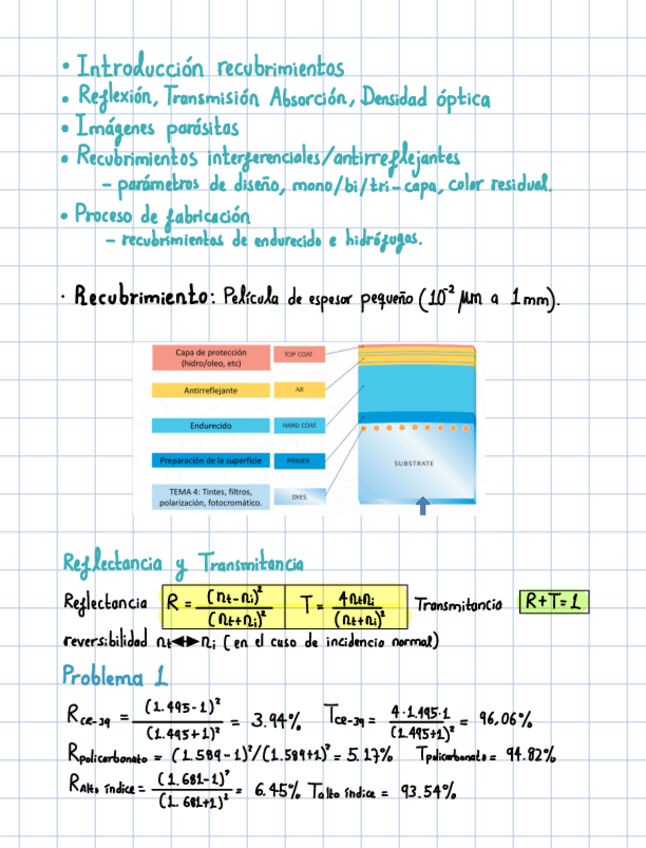 • Introducción recubrimientos
• Reflexión, Transmisión Absorción, Densidad óptica
• Imágenes parásitas
• Recubrimientos interferenciales/antirreflejantes
– parámetros de diseño, mono/bi/tri-capa, color residual.
• Proceso de fabricación
– recubrimientos de endurecido e hidrófugos.
· Recubrimiento: Película de espesor pequeño (10⁻² μm a 1mm).
Capa de protección (hidro/oleo, etc) TOP COAT
Antirreflejante AR
Endurecido HARD COAT
Preparación de la superficie PRIMER
SUBSTRATE
TEMA 4: Tintes, filtros, polarización, fotocromático. DYES
Reflectancia y Transmitancia
Reflectancia R = (nt-ni)²/(nt+ni)² T = 4ntni/(nt+ni)² Transmitancia R+T=1
reversibilidad nt↔ni (en el caso de incidencia normal)
Problema 1
R CR-39 = (1.495-1)²/(1.495+1)² = 3.94% T CR-39 = 4·1.495·1/(1.495+1)² = 96.06%
R policarbonato = (1.589-1)²/(1.589+1)² = 5.17% T policarbonato = 94.82%
R Alto índice = (1.681-1)²/(1.681+1)² = 6.45% T alto índice = 93.54%